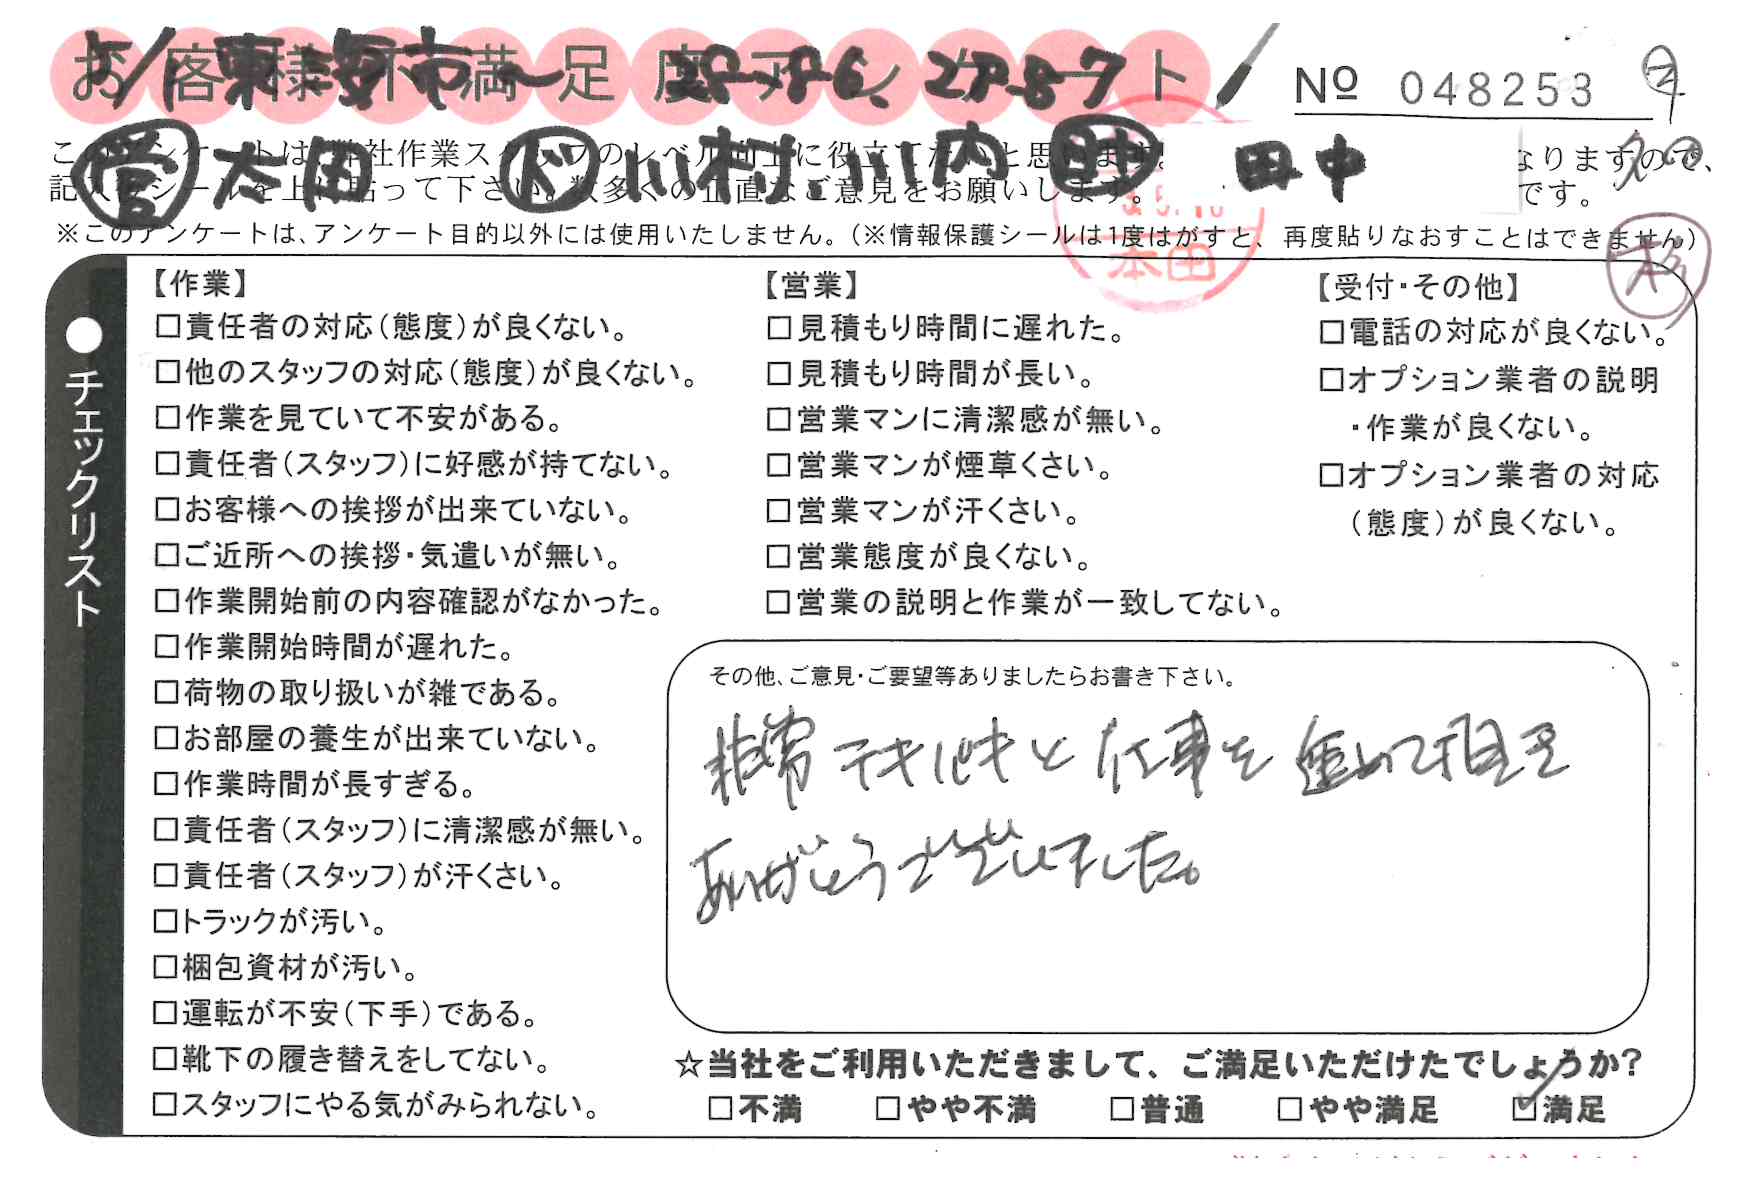 お客様不満足度アンケート
5/1 東海市〜 28-86、27-87
No 048253
営 太田 ド 川村 川内 助 田中
※このアンケートは、アンケート目的以外には使用いたしません。(※情報保護シールは1度はがすと、再度貼りなおすことはできません)
本田
チェックリスト
【作業】
□責任者の対応(態度)が良くない。
□他のスタッフの対応(態度)が良くない。
□作業を見ていて不安がある。
□責任者(スタッフ)に好感が持てない。
□お客様への挨拶が出来ていない。
□ご近所への挨拶・気遣いが無い。
□作業開始前の内容確認がなかった。
□作業開始時間が遅れた。
□荷物の取り扱いが雑である。
□お部屋の養生が出来ていない。
□作業時間が長すぎる。
□責任者(スタッフ)に清潔感が無い。
□責任者(スタッフ)が汗くさい。
□トラックが汚い。
□梱包資材が汚い。
□運転が不安(下手)である。
□靴下の履き替えをしてない。
□スタッフにやる気がみられない。
【営業】
□見積もり時間に遅れた。
□見積もり時間が長い。
□営業マンに清潔感が無い。
□営業マンが煙草くさい。
□営業マンが汗くさい。
□営業態度が良くない。
□営業の説明と作業が一致してない。
【受付・その他】
□電話の対応が良くない。
□オプション業者の説明
・作業が良くない。
□オプション業者の対応
(態度)が良くない。
その他、ご意見・ご要望等ありましたらお書き下さい。
非常テキパキと仕事を進めて頂き
ありがとうございました。
☆当社をご利用いただきまして、ご満足いただけたでしょうか?
□不満 □やや不満 □普通 □やや満足 ☑満足